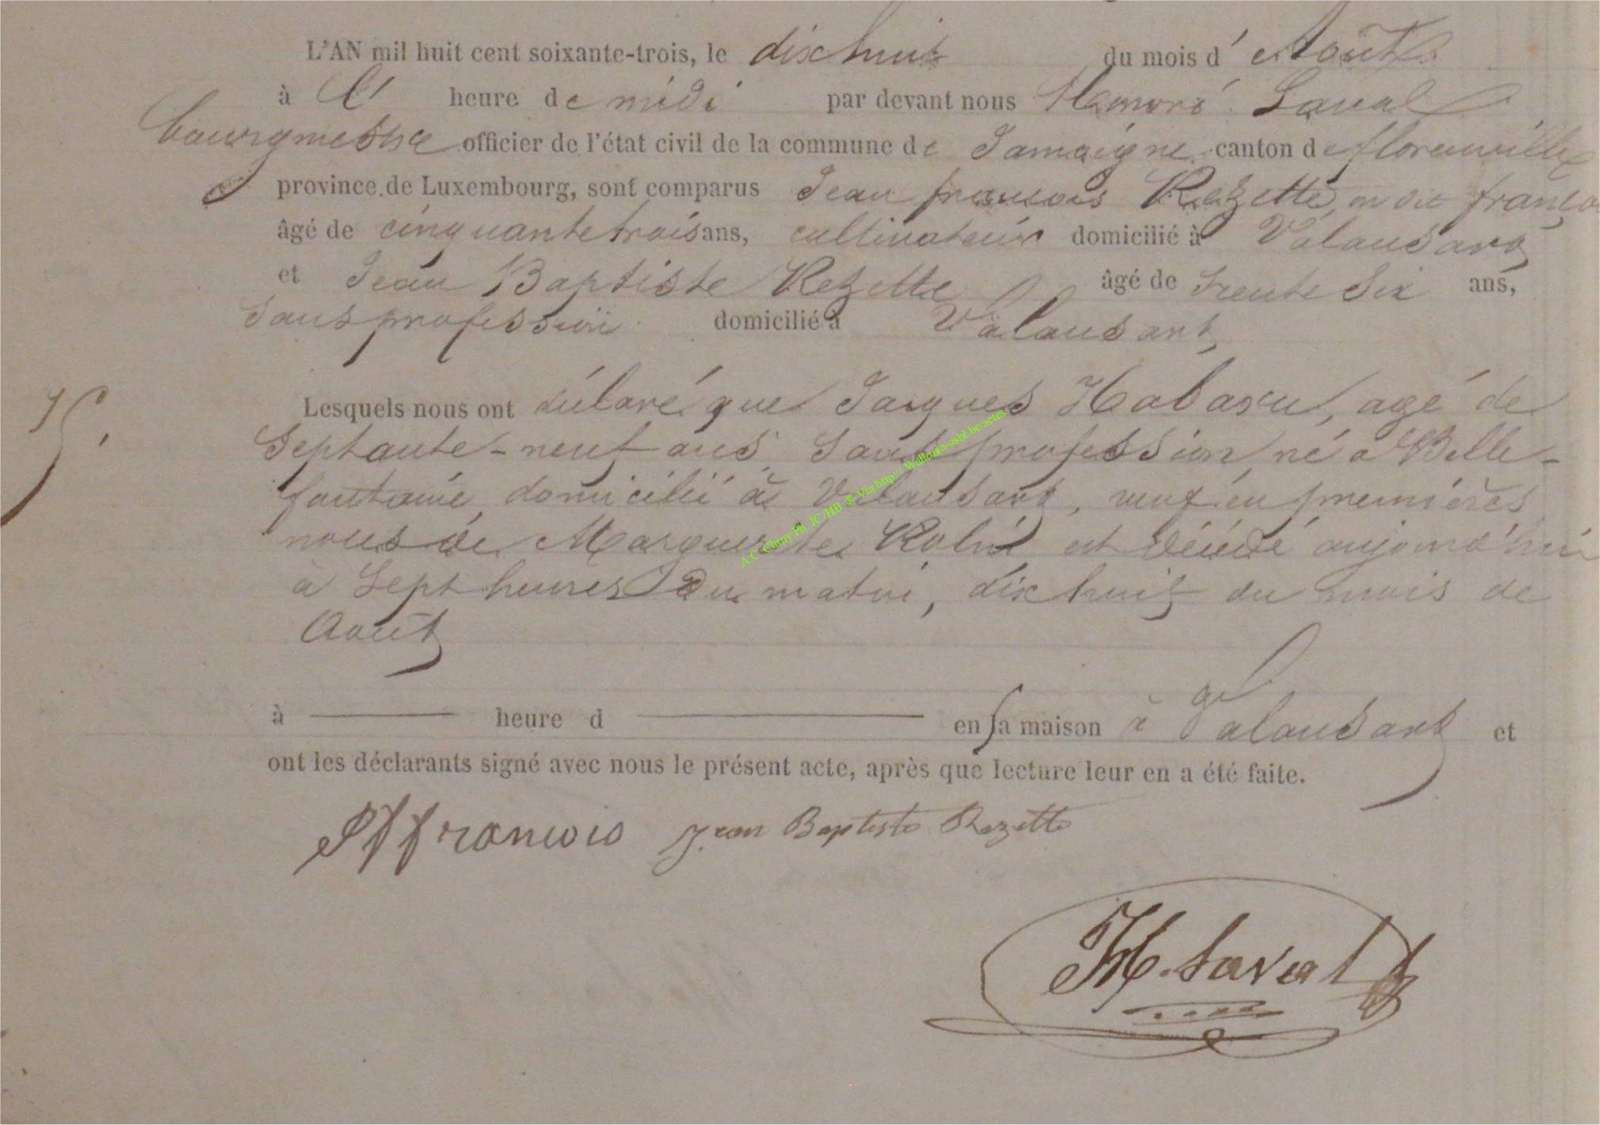 L'AN mil huit cent soixante-trois, le dix huit du mois d' Août
à heure de midi par devant nous Honoré Laval
bourgmestre officier de l'état civil de la commune de Jamoigne canton de florenville
province de Luxembourg, sont comparus Jean françois Rezette, on dit franço
âgé de cinquante trois ans, cultivateur domicilié à Valansart
et Jean Baptiste Rezette âgé de trente six ans,
Sans profession domicilié à Valansart
Lesquels nous ont déclaré que Jacques Habaru, agé de
Septante-neuf ans Sans profession né à Belle-
fontaine, domicilié à Valansart, veuf en premières
nous de Marguerite est décédé aujourd'hui
à Sept heures du matin, dix huit du mois de
Août
à heure d en sa maison à Valansart et
ont les déclarants signé avec nous le présent acte, après que lecture leur en a été faite.
francois Jean Baptiste Rezette
H. Laval